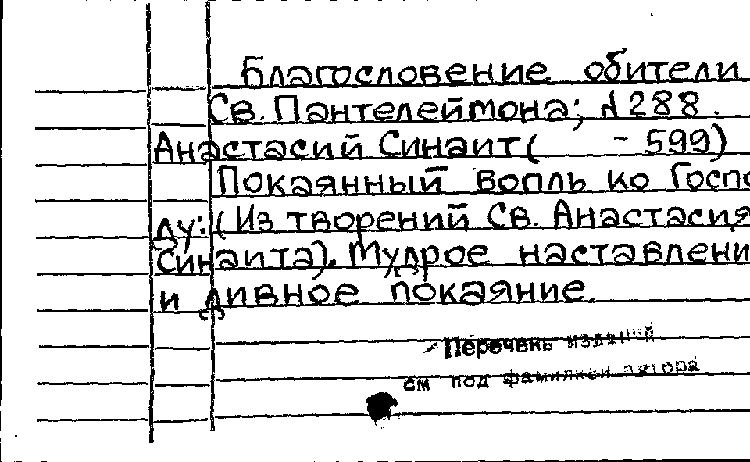 Благословение обители
Св. Пантелеймона; № 288.
Анастасий Синаит ( - 599)
Покаянный вопль ко Госпо
ду: (Из творений Св. Анастасия
Синаита). Мудрое наставлени
и дивное покаяние.
Перечень изданий
см под фамилией автора